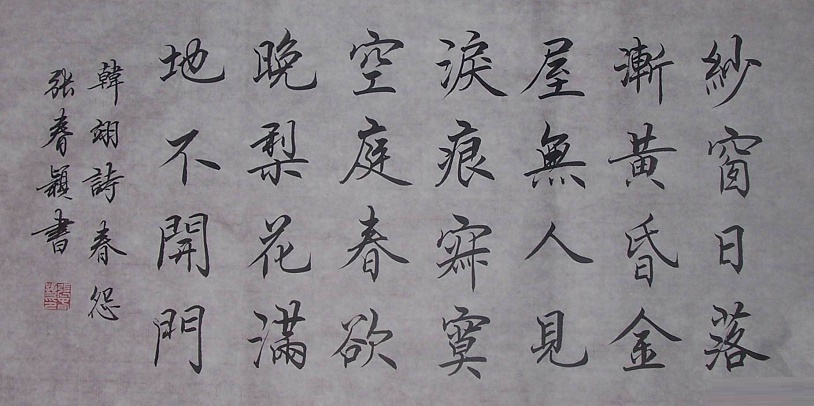 紗窗日落
漸黃昏金
屋無人見
淚痕寂寞
空庭春欲
晚梨花滿
地不開門
韓翊詩春怨
張春穎書